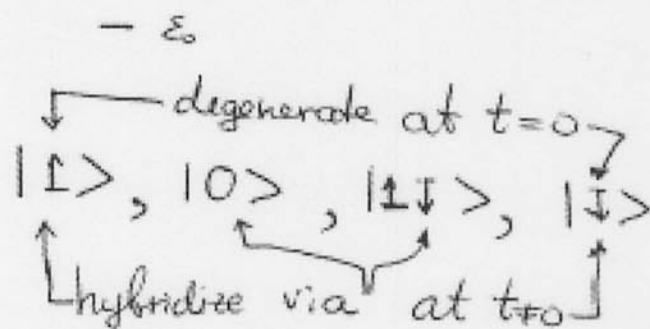 - ε₀
degenerate at t=0
|↑>, |0>, |↑↓>, |↓>
hybridize via at t≠0